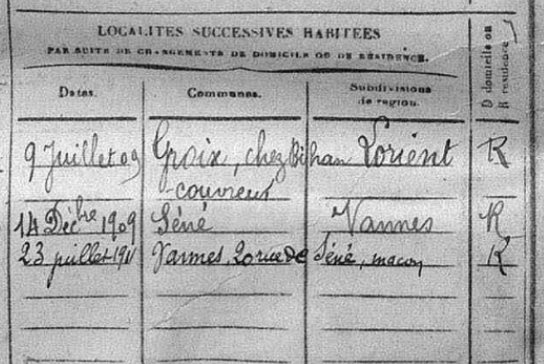 LOCALITÉS SUCCESSIVES HABITÉES
PAR SUITE DE CHANGEMENTS DE DOMICILE OU DE RÉSIDENCE.
D domicile ou
R résidence
Dates. Communes. Subdivisions
de région.
9 Juillet 09 Groix, chez Bihan Lorient R
couvreur
14 Décbre 1909 Séné Vannes R
23 juillet 1911 Vannes, 20 rue de Séné, maçon R